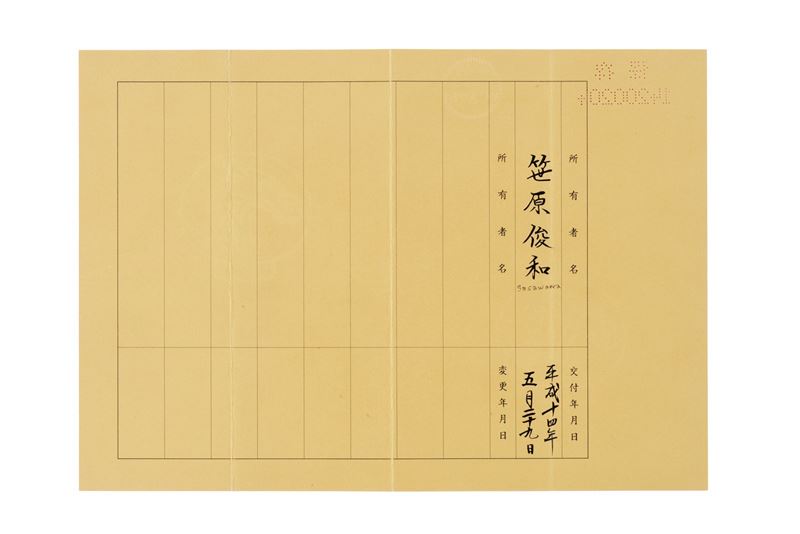 所有者名
笹原俊和
Sasawara
所有者名
交付年月日
平成十四年
五月二十九日
変更年月日